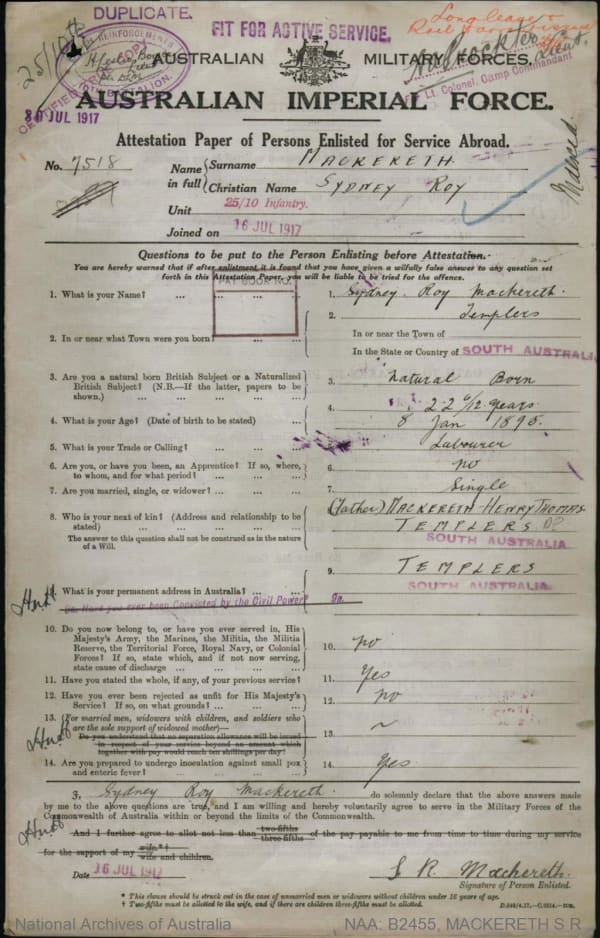 DUPLICATE.
FIT FOR ACTIVE SERVICE.
Long leave &
25/10th
REINFORCEMENTS
COPY
10TH BATTALION.
CERTIFIED
Lt. Colonel, Camp Commandant
AUSTRALIAN MILITARY FORCES.
AUSTRALIAN IMPERIAL FORCE.
30 JUL 1917
Attestation Paper of Persons Enlisted for Service Abroad.
No. 7518
Name in full { Surname MACKERETH.
Christian Name SYDNEY ROY
Unit 25/10 Infantry.
Joined on 16 JUL 1917
Questions to be put to the Person Enlisting before Attestation.
You are hereby warned that if after enlistment it is found that you have given a wilfully false answer to any question set
forth in this Attestation Paper, you will be liable to be tried for the offence.
PAY BOOK NO.
1. What is your Name? ... ... ... ... 1. Sydney. Roy Mackereth.
2. Templers
2. In or near what Town were you born? ... ... In or near the Town of
In the State or Country of SOUTH AUSTRALIA
3. Are you a natural born British Subject or a Naturalized
British Subject? (N.B.—If the latter, papers to be
shown.) ... ... ... ... ... 3. Natural Born
4. What is your Age? (Date of birth to be stated) ... 4. 22 6/12 years
8 Jan 1895.
5. What is your Trade or Calling? ... ... ... 5. Labourer
6. Are you, or have you been, an Apprentice? If so, where,
to whom, and for what period? ... ... ... 6. no
7. Are you married, single, or widower? ... ... 7. Single
8. Who is your next of kin? (Address and relationship to be
stated) ... ... ... ... (Father) MACKERETH HENRY THOMAS
TEMPLERS DO
SOUTH AUSTRALIA
The answer to this question shall not be construed as in the nature
of a Will.
9. What is your permanent address in Australia? ... ... 9. TEMPLERS
SOUTH AUSTRALIA.
9a. Have you ever been Convicted by the Civil Power? 9a.
10. Do you now belong to, or have you ever served in, His
Majesty's Army, the Marines, the Militia, the Militia
Reserve, the Territorial Force, Royal Navy, or Colonial
Forces? If so, state which, and if not now serving,
state cause of discharge ... ... ... 10. no
11. Have you stated the whole, if any, of your previous service? 11. Yes
12. Have you ever been rejected as unfit for His Majesty's
Service? If so, on what grounds? ... ... ... 12. no
13. (For married men, widowers with children, and soldiers who
are the sole support of widowed mother)—
Do you understand that no separation allowance will be issued
in respect of your service beyond an amount which
together with pay would reach ten shillings per day? 13. ~
14. Are you prepared to undergo inoculation against small pox
and enteric fever? ... ... ... ... 14. Yes
I, Sydney Roy Mackereth. do solemnly declare that the above answers made
by me to the above questions are true, and I am willing and hereby voluntarily agree to serve in the Military Forces of the
Commonwealth of Australia within or beyond the limits of the Commonwealth.
And I further agree to allot not less than two-fifths three-fifths of the pay payable to me from time to time during my service
for the support of my wife*† wife and children.
Date 16 JUL 1917
S. R. Mackereth.
Signature of Person Enlisted.
* This clause should be struck out in the case of unmarried men or widowers without children under 16 years of age.
† Two-fifths must be allotted to the wife, and if there are children three-fifths must be allotted.
National Archives of Australia
NAA: B2455, MACKERETH S R